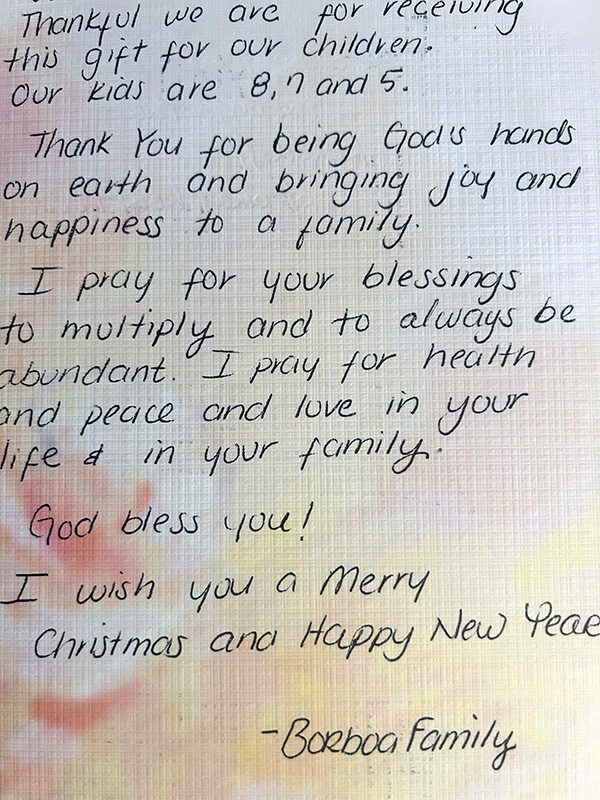 Thankful we are for receiving
this gift for our children.
Our kids are 8, 7 and 5.
Thank You for being God's hands
on earth and bringing joy and
happiness to a family.
I pray for your blessings
to multiply and to always be
abundant. I pray for health
and peace and love in your
life & in your family.
God bless you!
I wish you a Merry
Christmas and Happy New Year
-Borboa Family